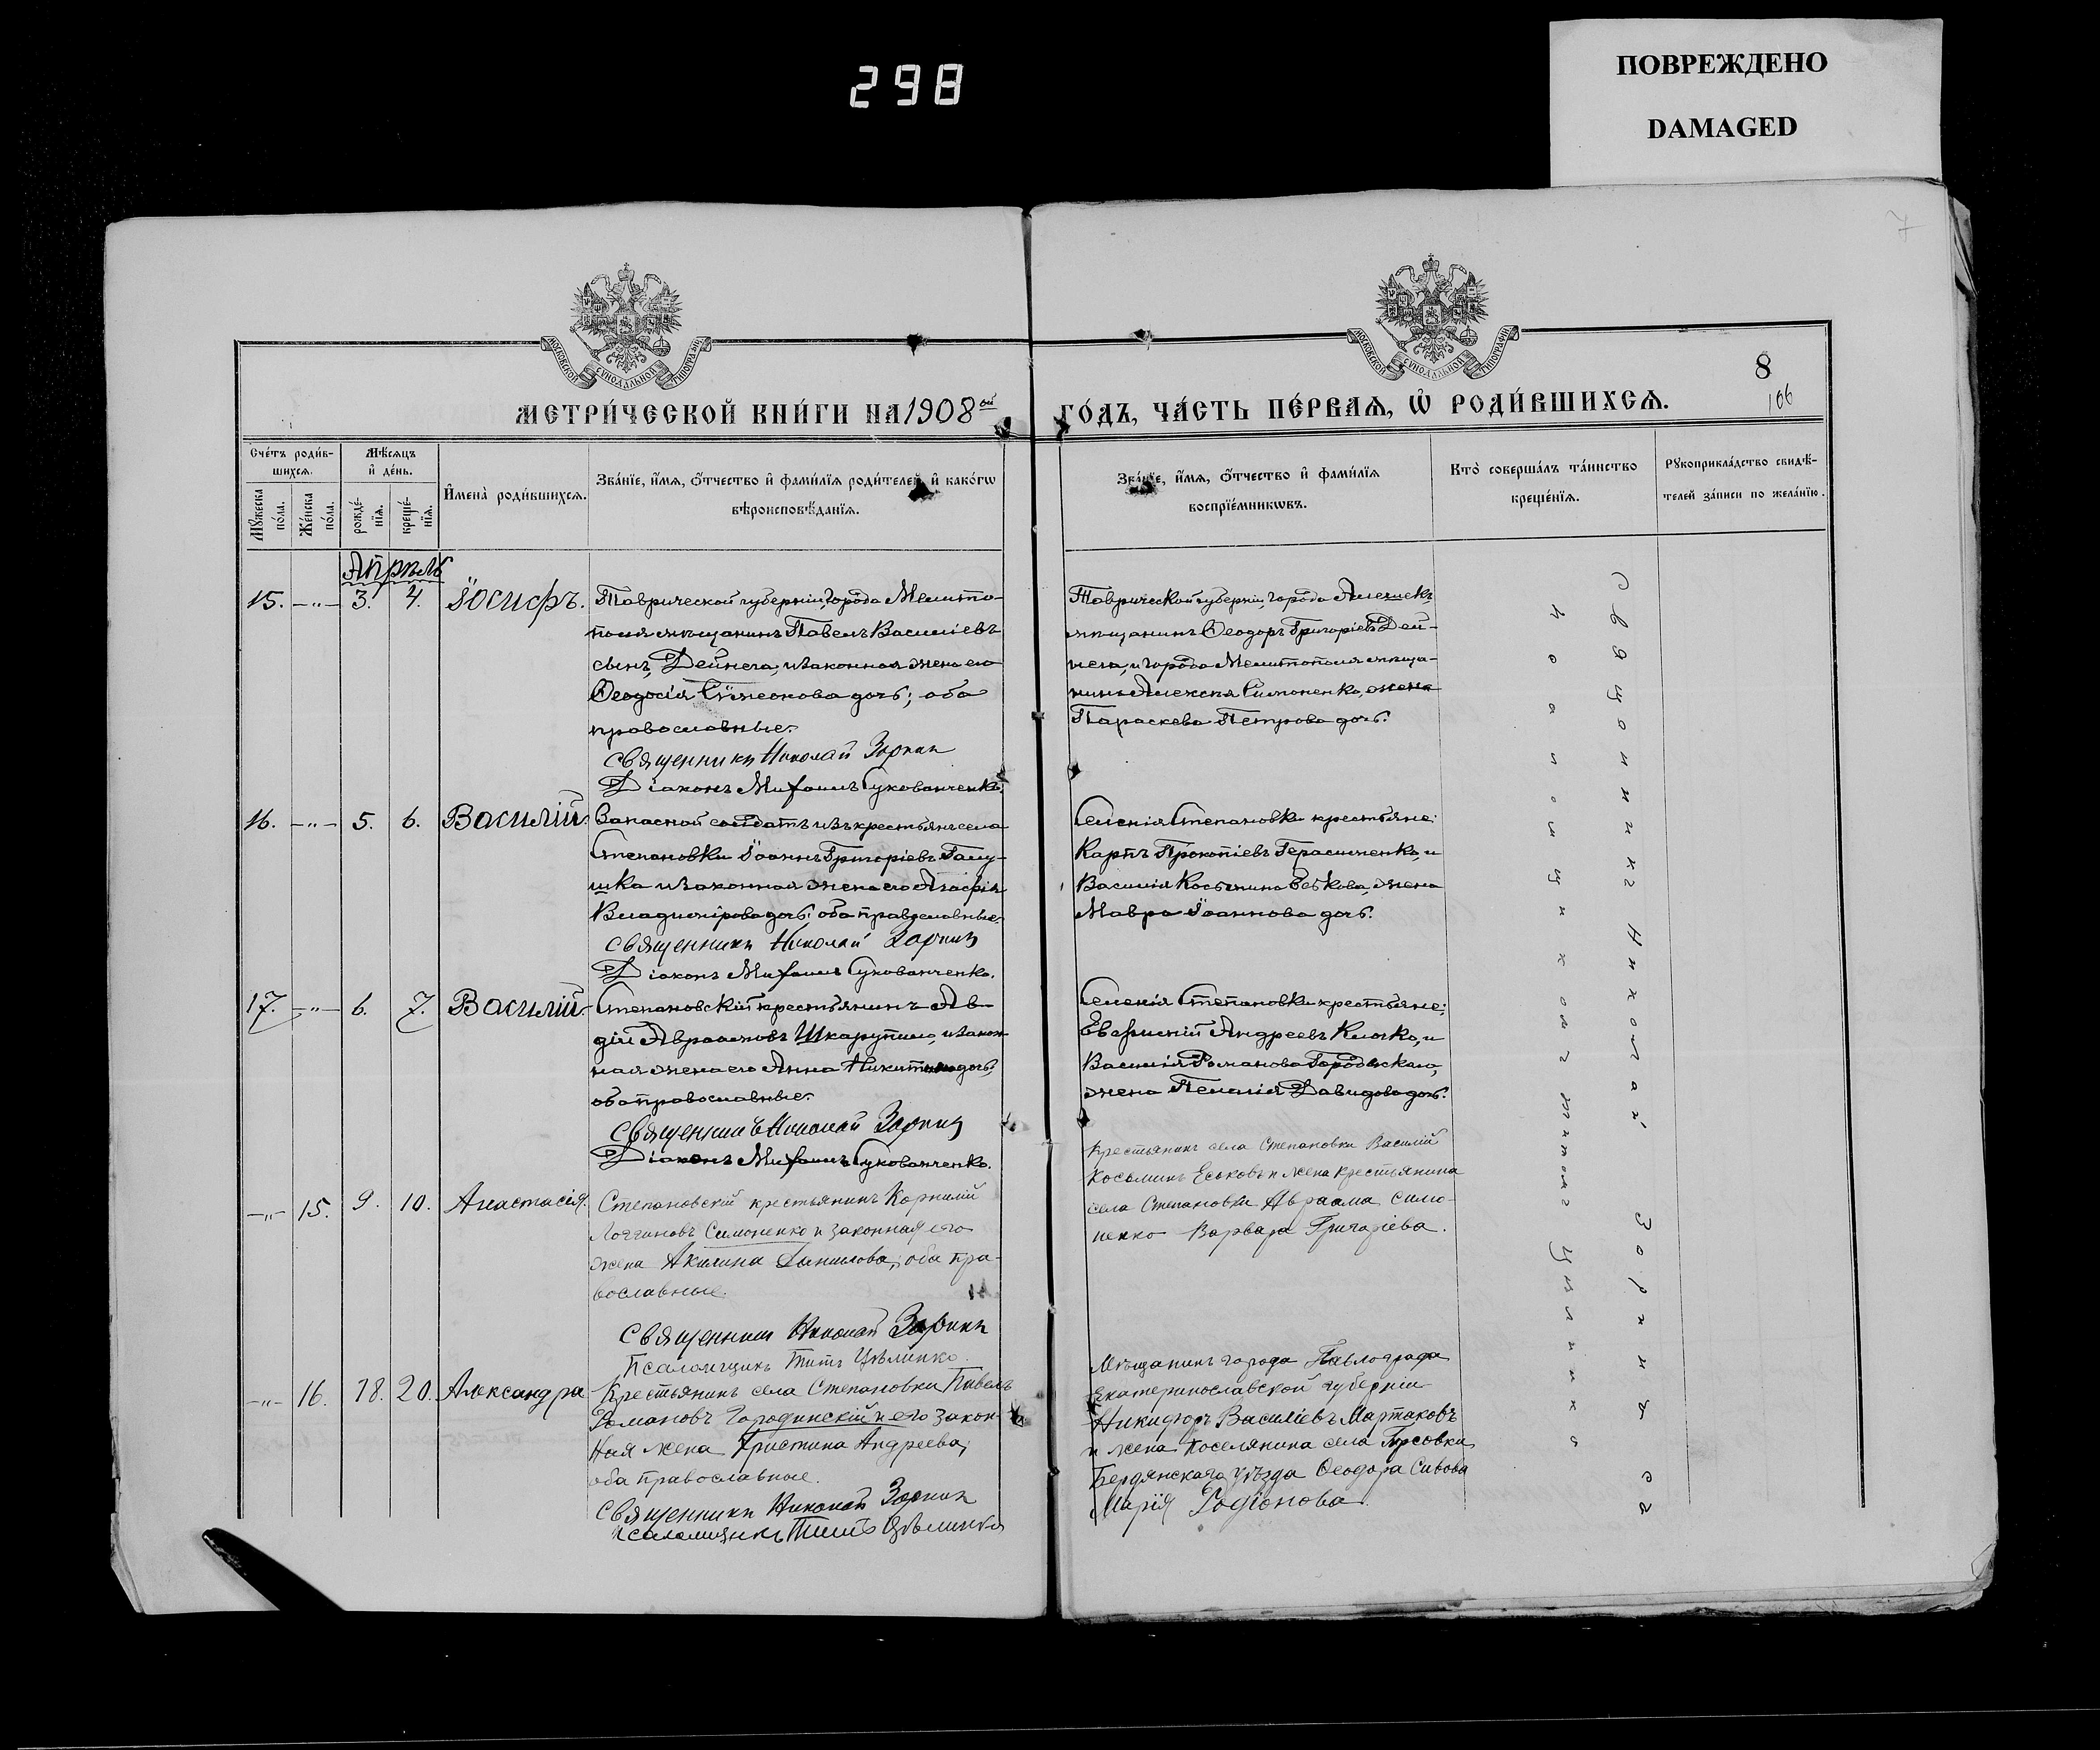 298
ПОВРЕЖДЕНО
DAMAGED
7
МОСКОВСКОЙ СѴНОДАЛЬНОЙ ТИПОГРАФІИ
МОСКОВСКОЙ СѴНОДАЛЬНОЙ ТИПОГРАФІИ
8
106
МЕТРИ́ЧЕСКОЙ КНИ́ГИ НА 1908 ой ГО́ДЪ, ЧА́СТЬ ПЕ́РВАѦ, Ѡ҆ РОДИ́ВШИХСѦ.
Сче́тъ роди́в-
шихсѧ.
Мꙋ́жеска по́ла.
Же́нска по́ла.
Мѣ́сяцъ
и҆ де́нь.
рожде́-
нїѧ.
креще́-
нїѧ.
И҆мена̀ роди́вшихсѧ.
Зва́нїе, и҆́мѧ, ѻ҆́тчество и҆ фами́лїѧ роди́телей, и҆ како́гѡ
вѣроисповѣ́данїѧ.
Зва́нїе, и҆́мѧ, ѻ҆́тчество и҆ фами́лїѧ
воспрїе́мникѡвъ.
Кто̀ соверша́лъ та́инство
креще́нїѧ.
Рꙋкоприкла́дство свидѣ́-
телей за́писи по жела́нїю.
Апрѣль
15. —„— 3. 4. Іосифъ.
Таврической губерніи, города Мелито-
поля мѣщанинъ Павелъ Василіевъ
сынъ, Дейнега, и законная жена его
Ѳеодосія Сѵмеонова дочь; оба
православные.
Священникъ Николай Зоринъ
Діаконъ Михаилъ Сукованченко.
Таврической губерніи, города Алешекъ
мѣщанинъ Ѳеодоръ Григоріевъ Дей-
нега, и города Мелитополя мѣща-
нина Алексѣя Симоненко, жена
Параскева Петрова дочь.
16. —„— 5. 6. Василій.
Запасной солдатъ изъ крестьянъ села
Степановки Іоаннъ Григоріевъ Галу-
шка и законная жена его Агафія
Владимірова дочь; оба православные.
Священникъ Николай Зоринъ
Діаконъ Михаилъ Сукованченко.
Селенія Степановки крестьяне:
Карпъ Прокопіевъ Герасименко, и
Василія Косьмина Еськова, жена
Мавра Іоаннова дочь.
17. —„— 6. 7. Василій.
Степановскій крестьянинъ Ав-
дій Авраамовъ Шкарупило, и закон-
ная жена его Анна Никитина дочь,
оба православные.
Священникъ Николай Зоринъ
Діаконъ Михаилъ Сукованченко.
Селенія Степановки крестьяне;
Евфимій Андреевъ Клочко, и
Василія Романова Городинскаго,
жена Пелагія Давидова дочь.
—„— 15. 9. 10. Анастасія.
Степановскій крестьянинъ Корнилій
Логгиновъ Симоненко и законная его
жена Акилина Данилова; оба пра-
вославные.
Священникъ Николай Зоринъ
Псаломщикъ Титъ Цѣлинко.
Крестьянинъ села Степановки Василій
Косьминъ Еськовъ и жена крестьянина
села Степановки Авраама Симо-
ненко Варвара Григоріева.
—„— 16. 18. 20. Александра
Крестьянинъ села Степановки Павелъ
Романовъ Городинскій и его закон-
ная жена Христина Андреева;
оба православные.
Священникъ Николай Зоринъ
Псаломщикъ Титъ Цѣлинко
Мѣщанинъ города Павлограда
Екатеринославской губерніи
Никифоръ Василіевъ Мартаковъ
и жена поселянина села
Бердянскаго уѣзда Ѳеодора Сивова
Марія Родіонова.
Священникъ Николай Зоринъ съ
псаломщикомъ Титомъ Цѣлинко